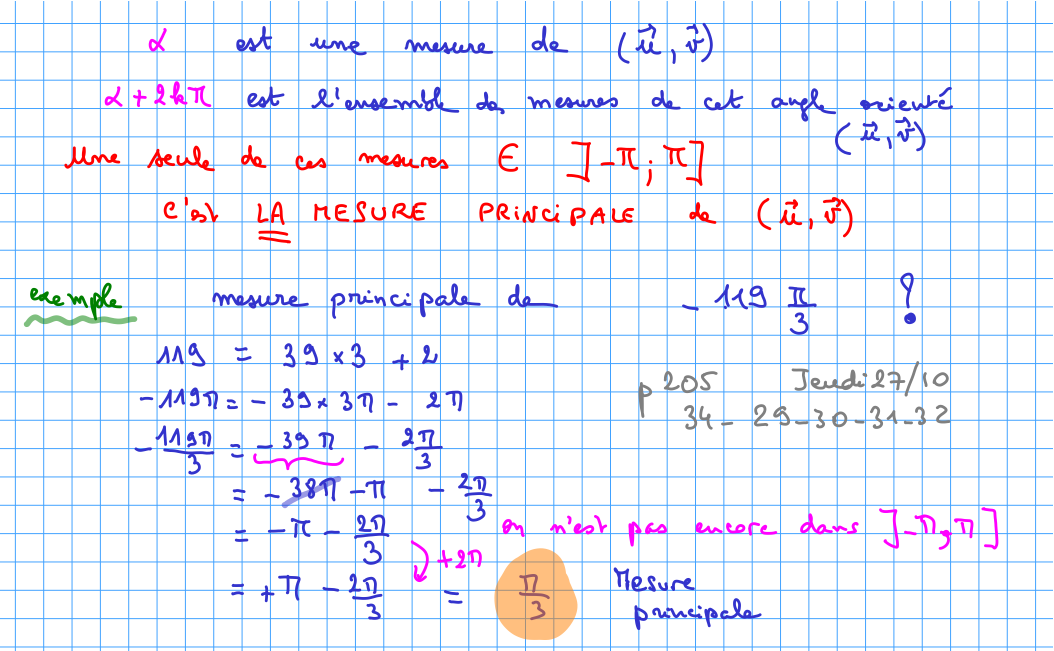 α est une mesure de (u⃗, v⃗)
α + 2kπ est l'ensemble de mesures de cet angle orienté
(u⃗, v⃗)
Une seule de ces mesures ∈ ]-π ; π]
C'est LA MESURE PRINCIPALE de (u⃗, v⃗)
exemple mesure principale de - 119 π/3 ?
119 = 39 × 3 + 2
-119π = - 39 × 3π - 2π
p 205 Jeudi 27/10
34 - 29 - 30 - 31 - 32
- 119π/3 = - 39π - 2π/3
= - 38π - π - 2π/3
= - π - 2π/3 on n'est pas encore dans ]-π, π]
+2π
= + π - 2π/3 = π/3 Mesure
principale